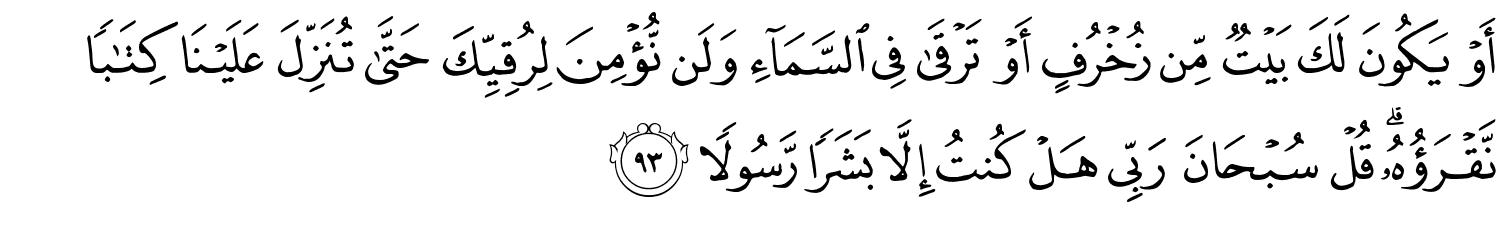 أَوۡ يَكُونَ لَكَ بَيۡتٞ مِّن زُخۡرُفٍ أَوۡ تَرۡقَىٰ فِي ٱلسَّمَآءِ وَلَن نُّؤۡمِنَ لِرُقِيِّكَ حَتَّىٰ تُنَزِّلَ عَلَيۡنَا كِتَٰبٗا
نَّقۡرَؤُهُۥۗ قُلۡ سُبۡحَانَ رَبِّي هَلۡ كُنتُ إِلَّا بَشَرٗا رَّسُولٗا ٩٣